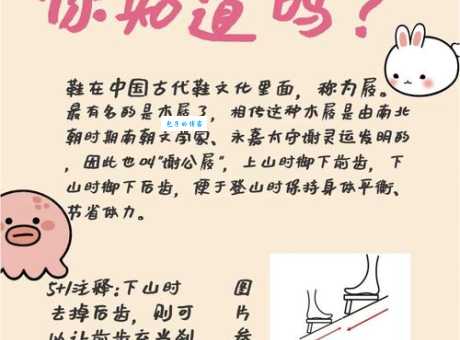 你知道吗？
鞋在中国古代鞋文化里面，称为屐。
最有名的是木屐了，相传这种木屐是由南北
朝时期南朝文学家、永嘉太守谢灵运发明的
，因此也叫“谢公屐”，上山时卸下前齿，下
山时卸下后齿，便于登山时保持身体平衡、
节省体力。
5+1注释：下山时
去掉后齿，则可
以让前齿充当刹
图
片
参